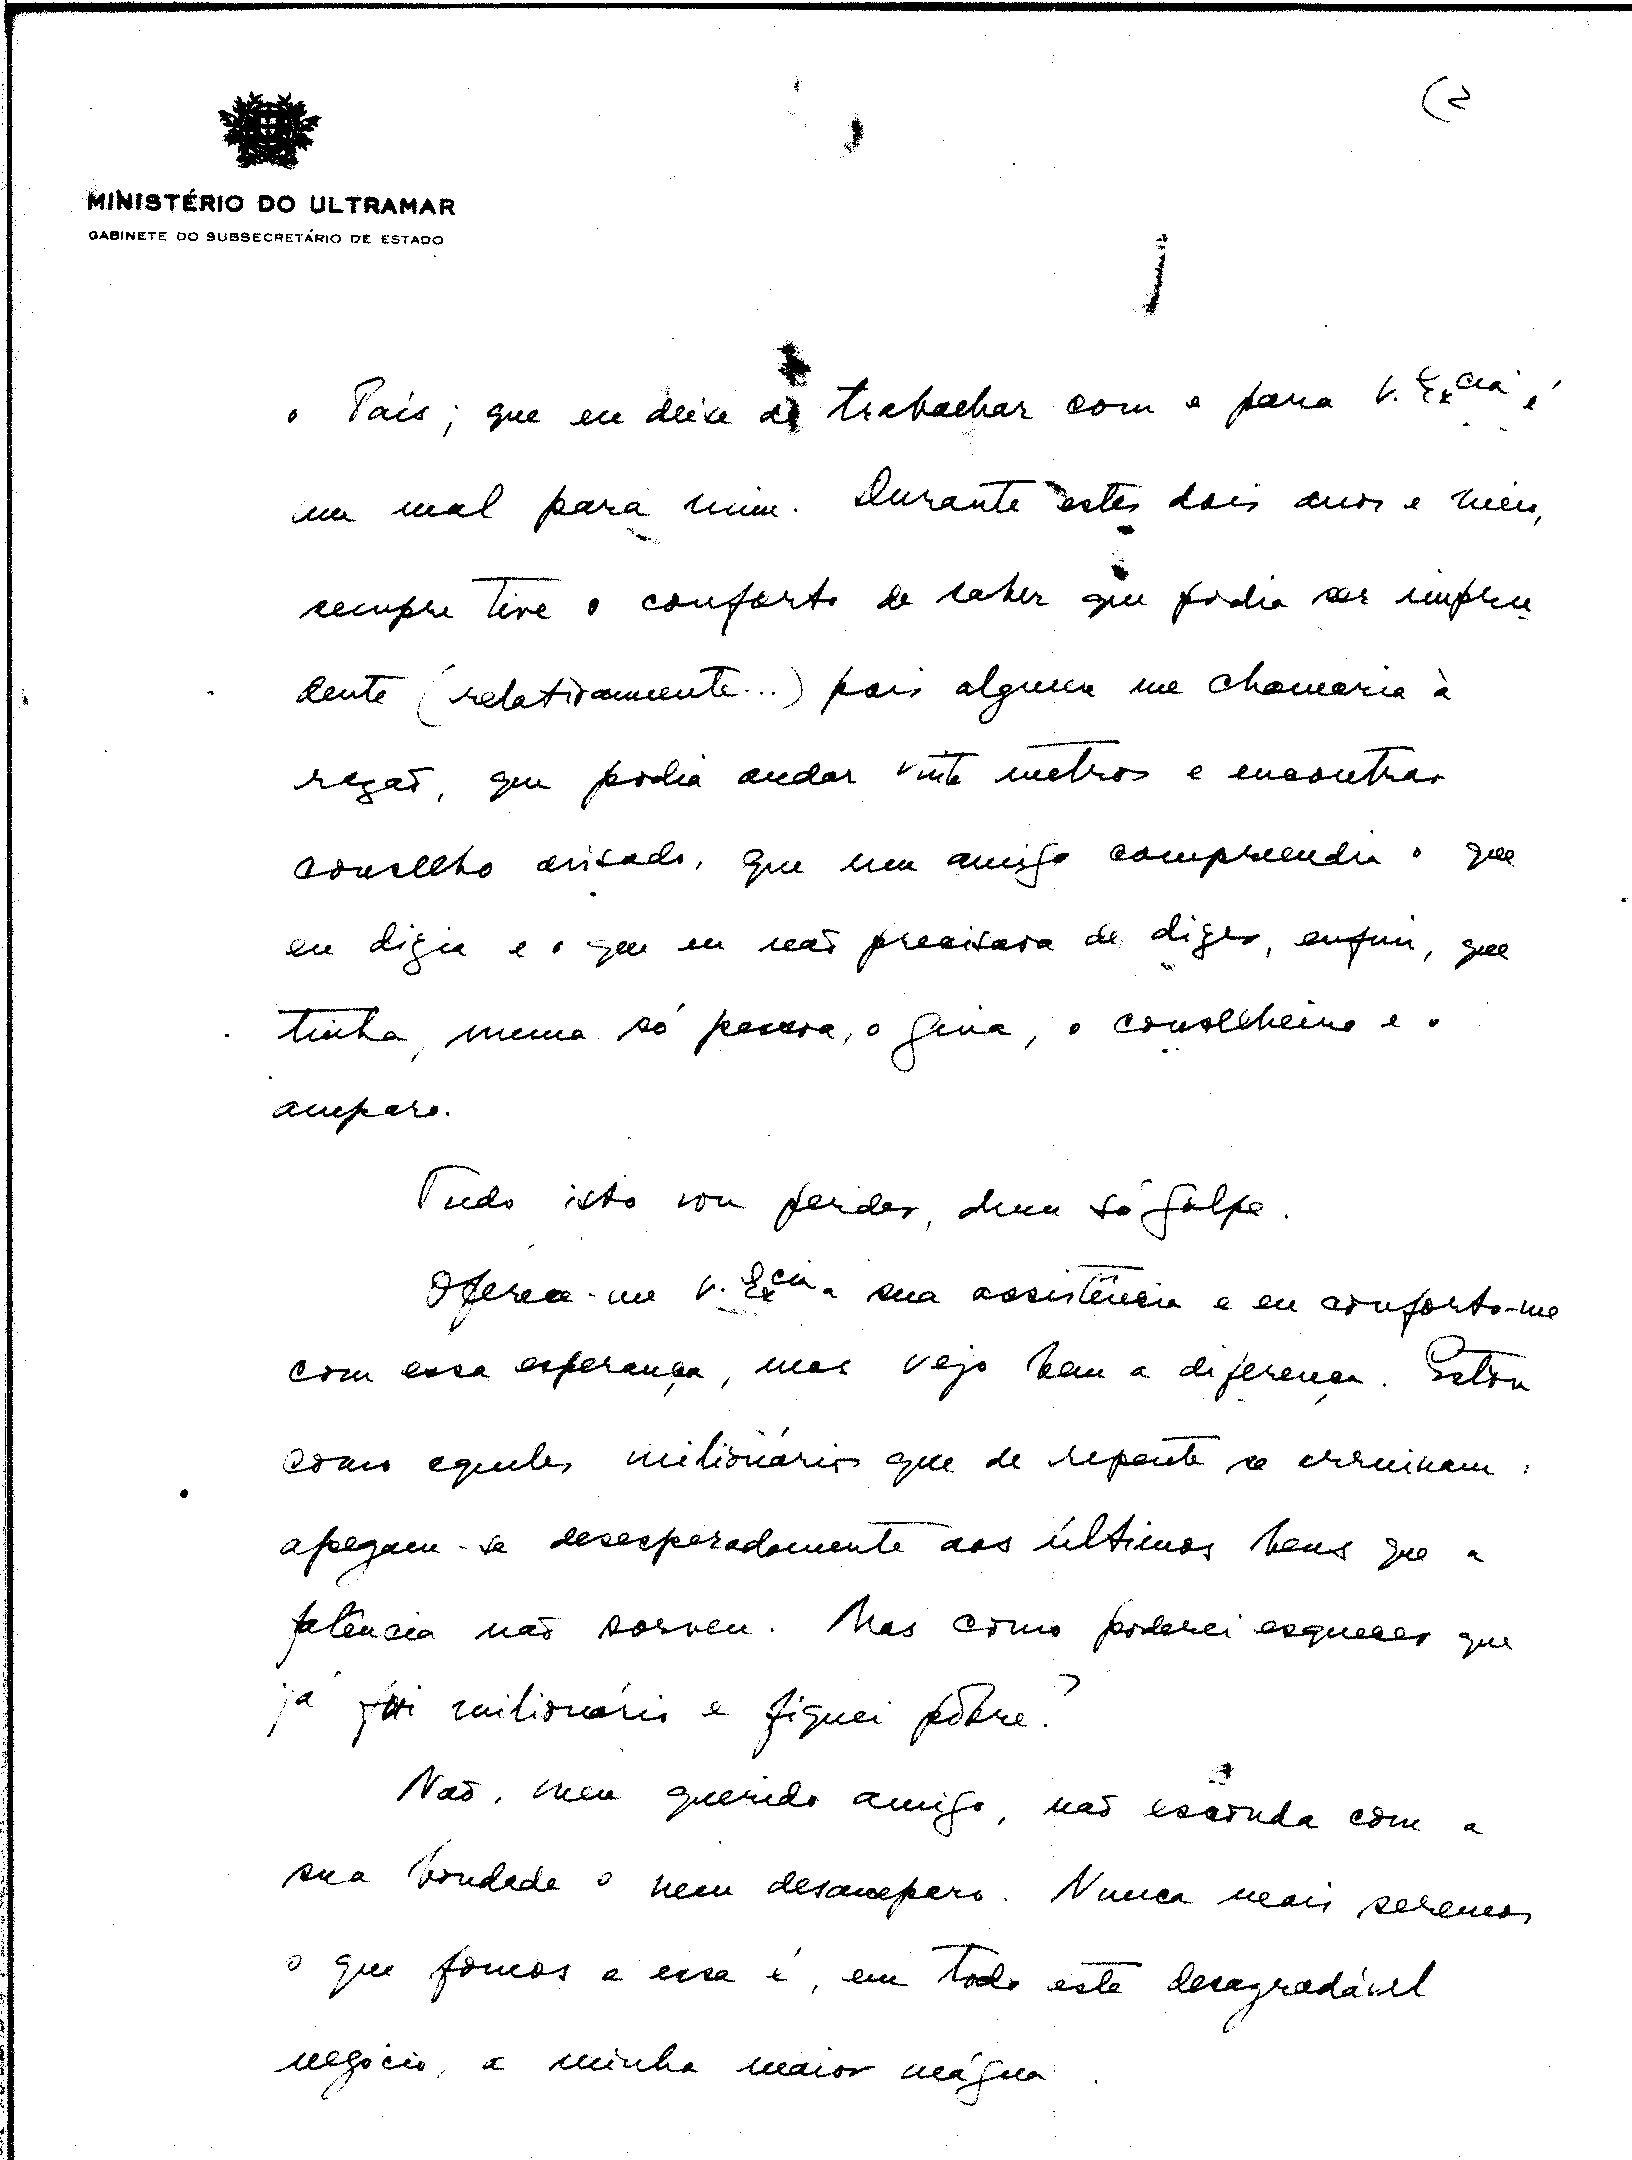 (2
MINISTÉRIO DO ULTRAMAR
GABINETE DO SUBSECRETÁRIO DE ESTADO
o País; que eu deixe de trabalhar com e para V. Excia é
um mal para mim. Durante estes dois anos e meio,
sempre tive o conforto de saber que podia ser impru-
dente (relativamente...) pois alguem me chamaria à
razão, que podia andar vinte metros e encontrar
conselho avisado, que um amigo compreendia o que
eu dizia e o que eu não precisava de dizer, enfim, que
tinha, numa só pessoa, o guia, o conselheiro e o
amparo.
Tudo isto vou perder, dum só golpe.
Oferece-me V. Excia a sua assistência e eu conforto-me
com essa esperança, mas vejo bem a diferença. Estou
como aqueles milionários que de repente se arruinam:
apegam-se desesperadamente aos últimos bens que a
falência não sorveu. Mas como poderei esquecer que
já fui milionário e fiquei pôbre?
Não, meu querido amigo, não esconda com a
sua bondade o meu desamparo. Nunca mais seremos
o que fomos e essa é, em todo este desagradável
negócio, a minha maior mágua.